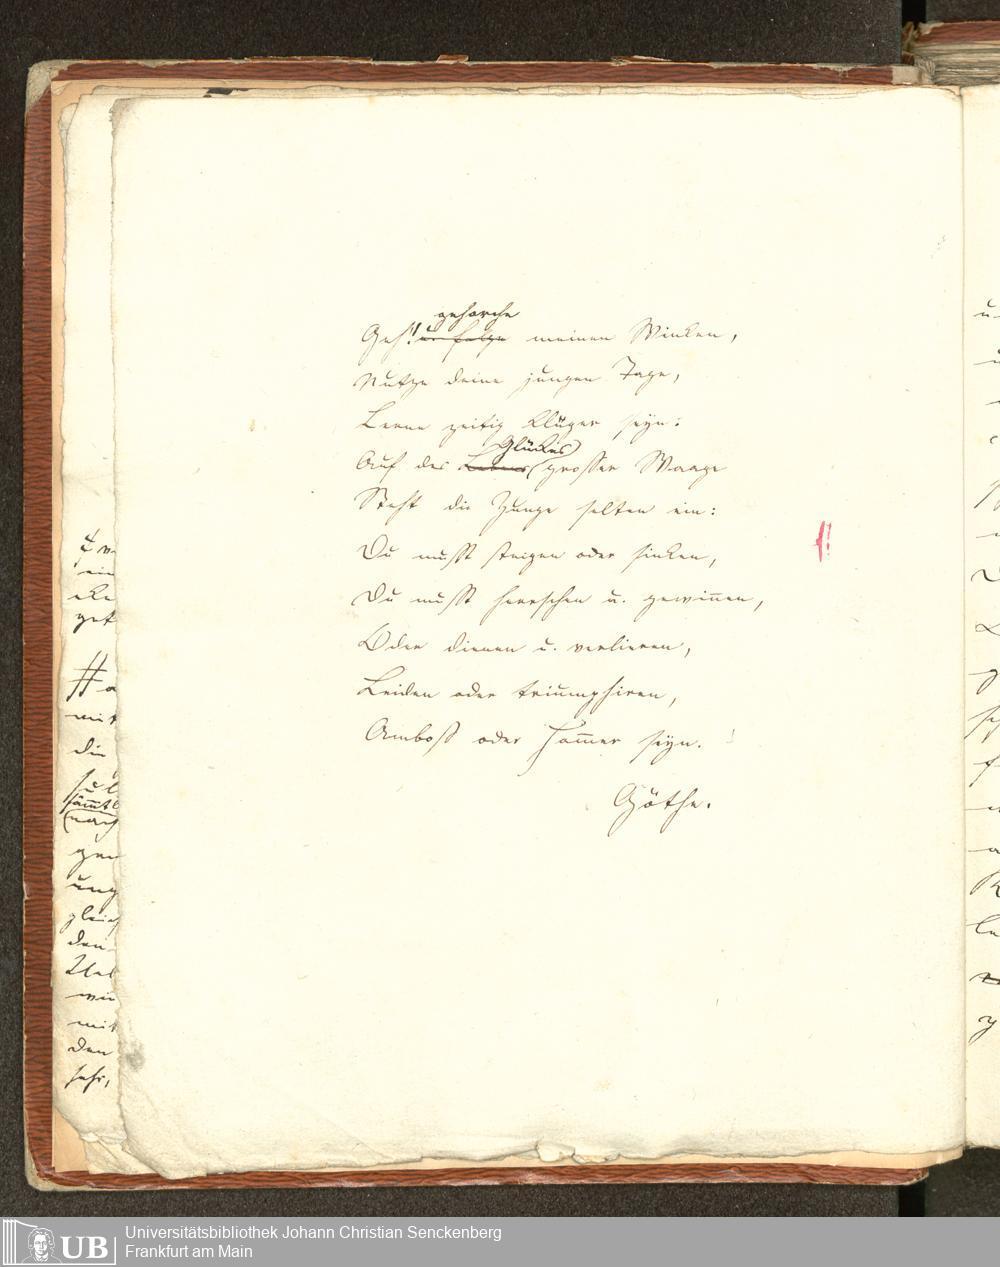 gehorche
Geh! u. folge meinen Winken,
Nutze deine jungen Tage,
Lerne zeitig klüger seyn:
Glückes
Auf des Lebens grosser Waage
Steht die Zunge selten ein:
Du mußt steigen oder sinken,
Du mußt herrschen u. gewinnen,
Oder dienen u. verlieren,
Leiden oder triumphiren,
Amboß oder Hammer seyn.
Göthe.
mit
die
den
mit
den
UB
Universitätsbibliothek Johann Christian Senckenberg
Frankfurt am Main